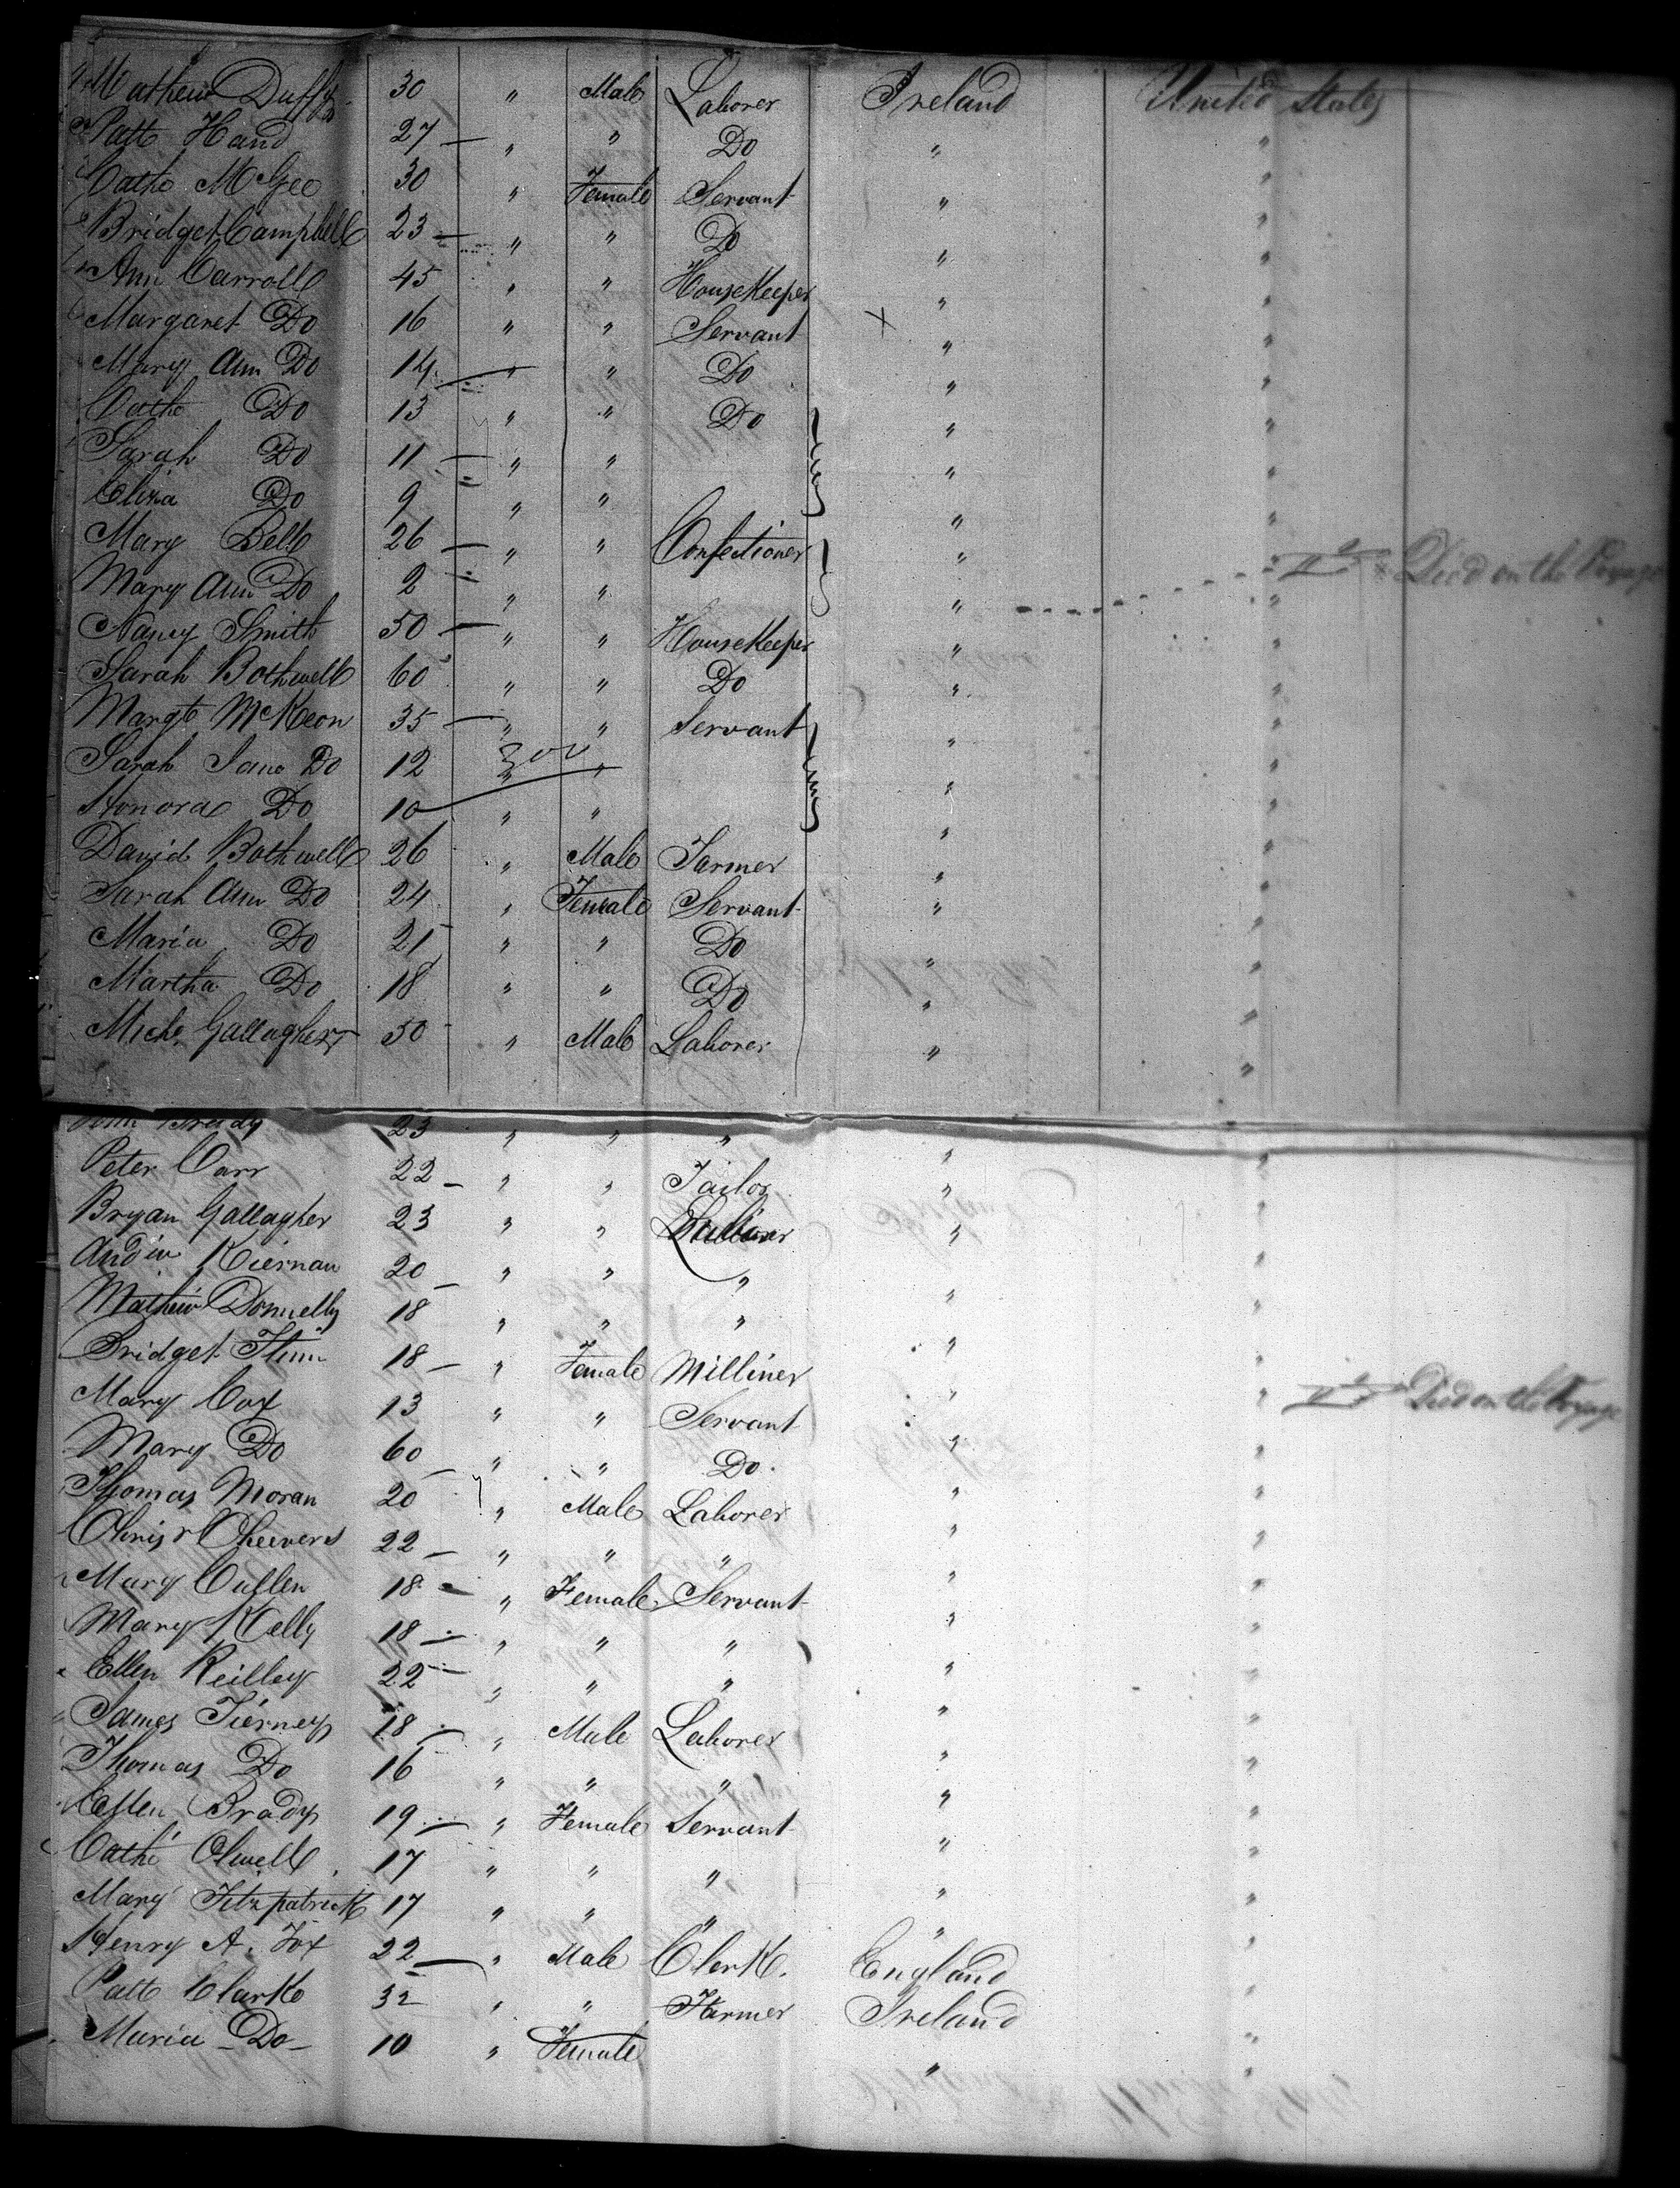 Mathew Duffy 30 " Male Laborer Ireland United States
Patt Hand 27 — " " Do " "
Cathe McGee 30 " Female Servant " "
Bridget Campbell 23 — " " Do " "
Ann Carroll 45 " " HouseKeeper " "
Margaret Do 16 " " Servant X " "
Mary Ann Do 14 " " Do " "
Cathe Do 13 " " Do " "
Sarah Do 11 — " " " "
Eliza Do 9 " " " "
Mary Bell 26 — " " Confectioner " "
Mary Ann Do 2 " " " " Died on the Voyage
Nancy Smith 50 — " " HouseKeeper " "
Sarah Bothwell 60 " " Do " "
Margt McKeon 35 — " " Servant " "
Sarah Jane Do 12 " " " "
Honora Do 10 " " " "
David Bothwell 26 " Male Farmer " "
Sarah Ann Do 24 " Female Servant " "
Maria Do 21 " " Do " "
Martha Do 18 " " Do " "
Michl Gallagher 50 " Male Laborer " "
Brady 23 " " " " "
Peter Carr 22 — " " Tailor " "
Bryan Gallagher 23 " " " "
Andw Kiernan 20 — " " " " "
Mathew Donnelly 18 " " " " "
Bridget Flinn 18 — " Female Milliner " "
Mary Cox 13 " " Servant " " Died on the Voyage
Mary Do 60 — " " Do " "
Thomas Moran 20 " Male Laborer " "
Christr Cheevers 22 — " " " " "
Mary Cullen 18 — " Female Servant " "
Mary Kelly 18 — " " " " "
Ellen Reilley 22 — " " " " "
James Tierney 18 — " Male Laborer " "
Thomas Do 16 " " " " "
Ellen Brady 19 — " Female Servant " "
Cathe Olwell 17 " " " " "
Mary Fitzpatrick 17 " " " " "
Henry A. Fox 22 — " Male Clerk. England "
Patt Clarke 32 " " Farmer Ireland "
Maria - Do - 10 " Female " "